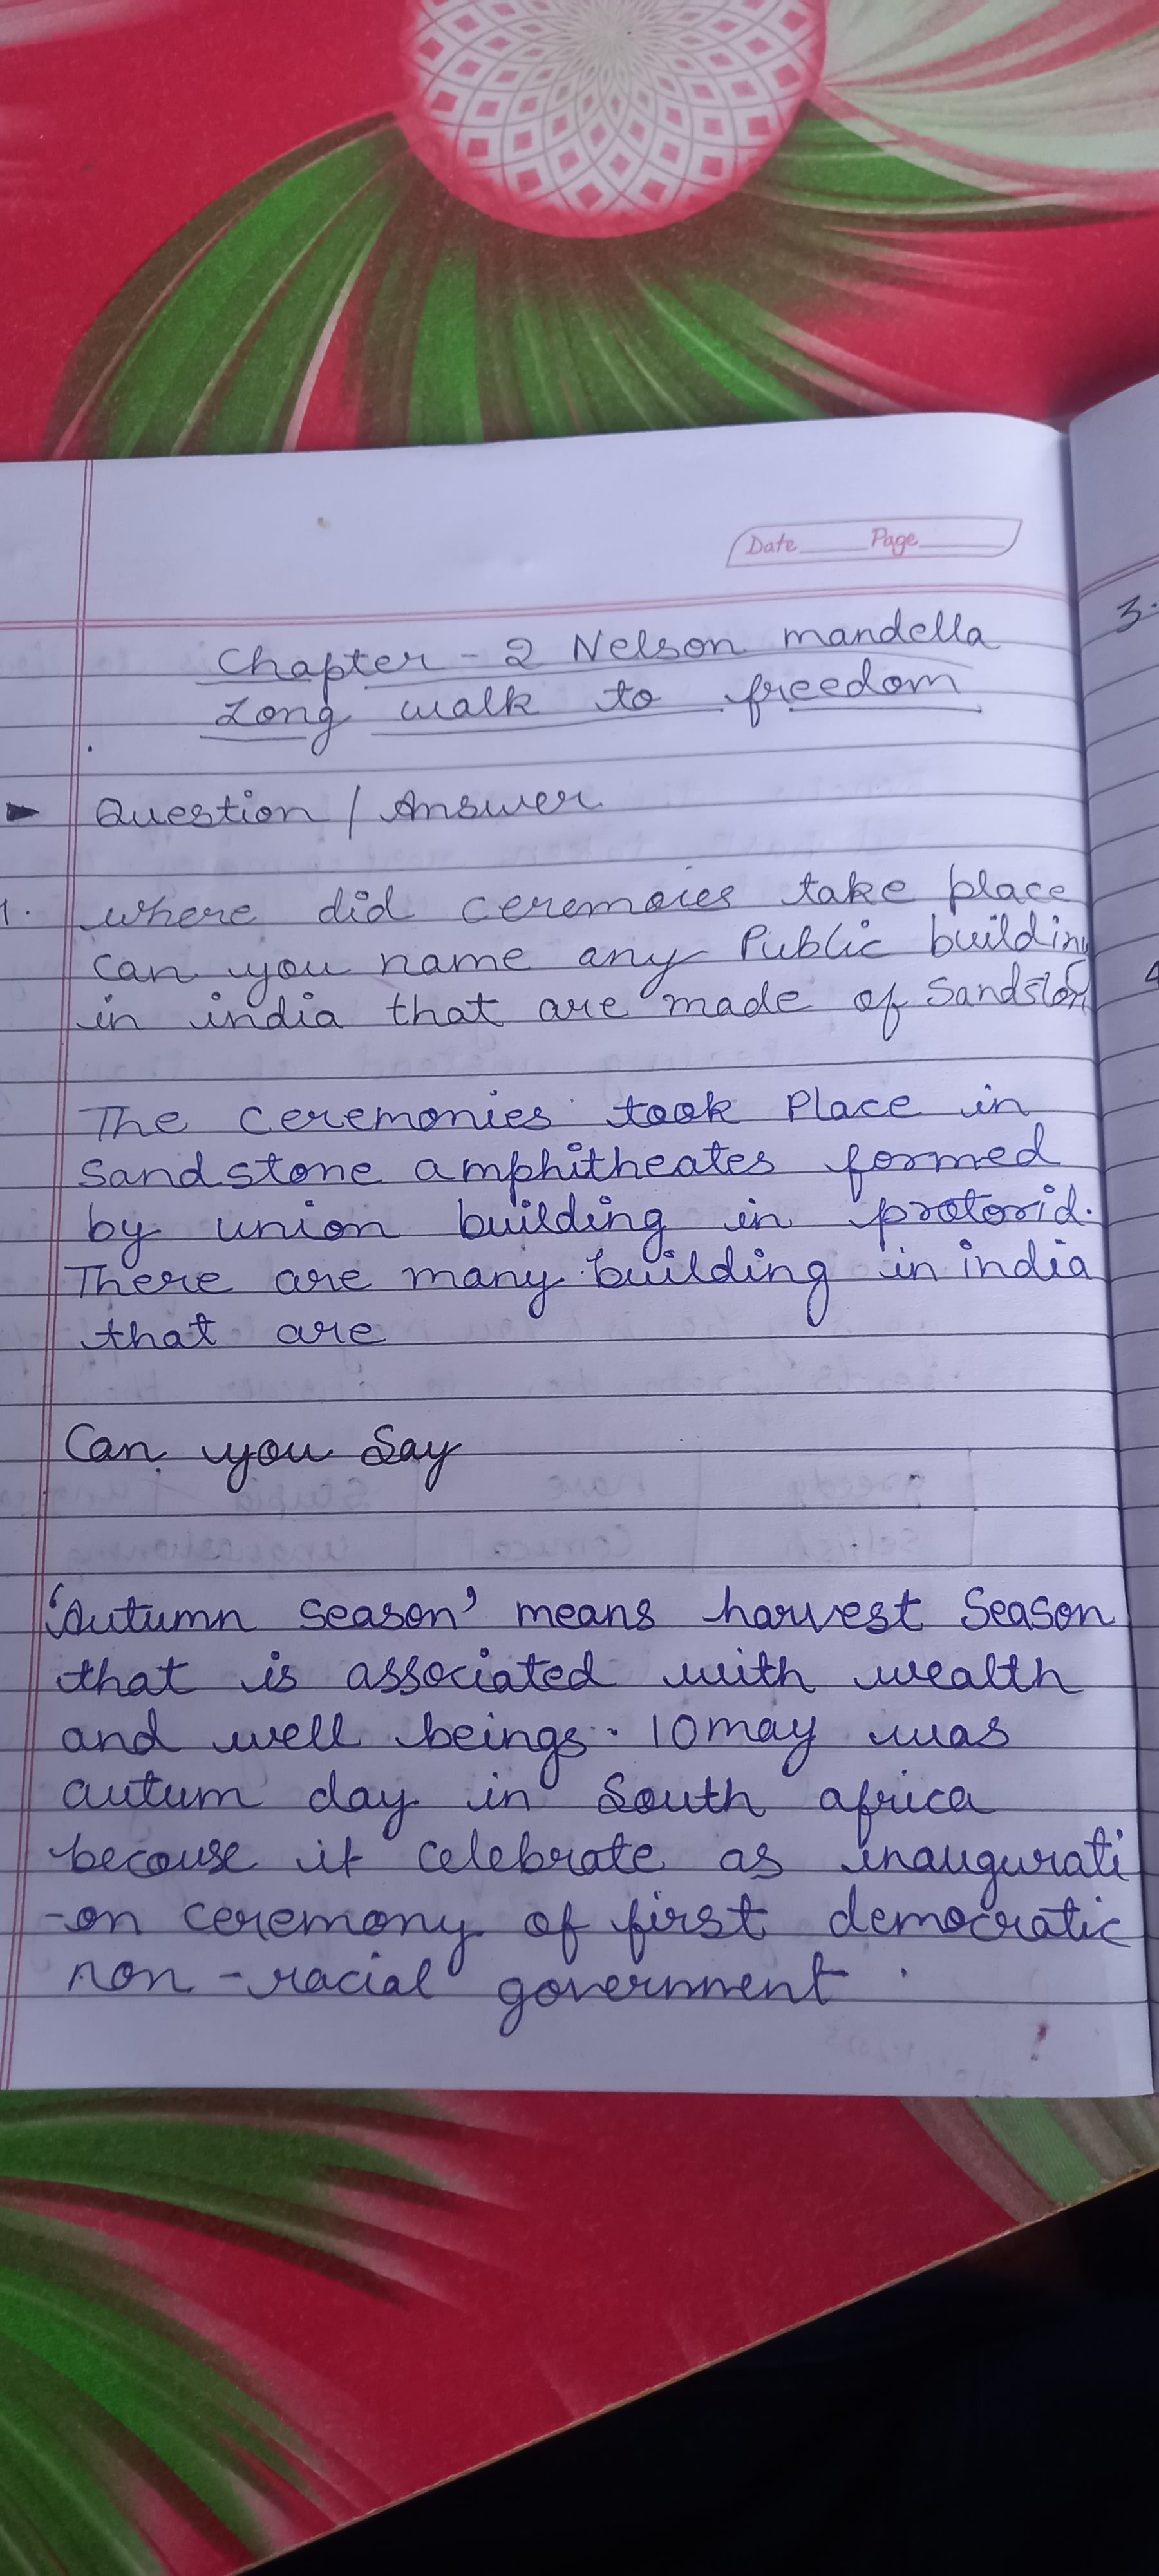 Date Page
Chapter - 2 Nelson mandella
Long walk to freedom
Question / Answer
1. where did ceremoies take place
can you name any Public building
in india that are made of Sandston
The ceremonies took Place in
Sandstone amphitheates formed
by union building in protorid.
There are many building in india
that are
Can you Say
'Autumn Season' means harvest Season
that is associated with wealth
and well beings. 10 may was
autum day in South africa
because it celebrate as inaugurati
-on ceremony of first democratic
non-racial government.
3.
4